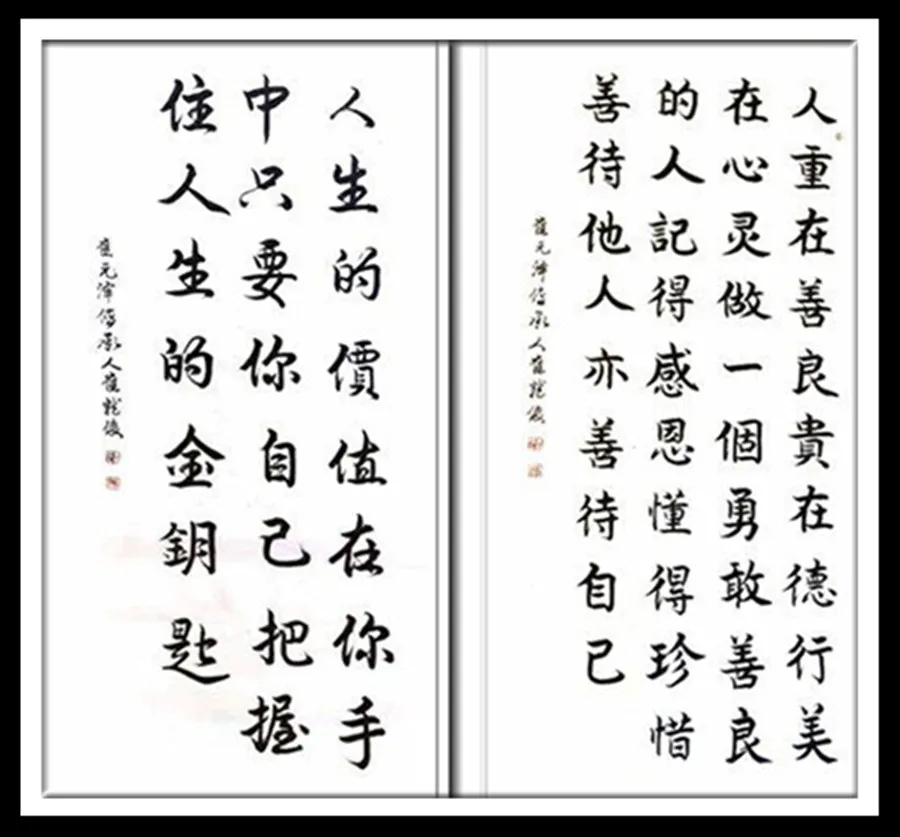 人重在善良貴在德行美
在心灵做一個勇敢善良
的人記得感恩懂得珍惜
善待他人亦善待自己
崔元传承人崔
人生的價值在你手
中只要你自己把握
住人生的金鑰匙
崔元传承人崔